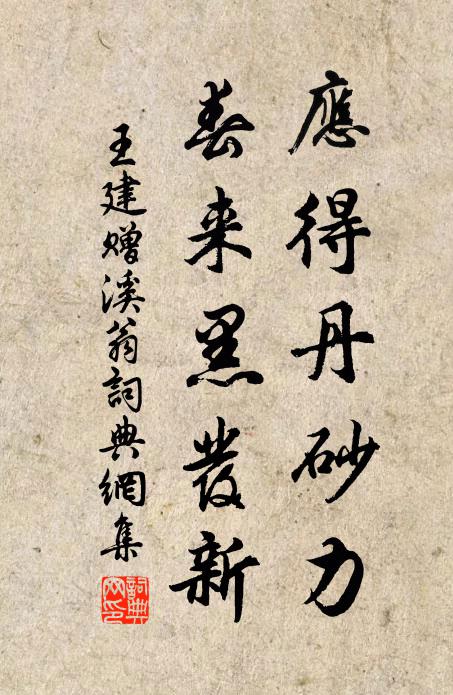 應得丹砂力
春来黑發新
王建贈溪翁詞典網集
詞典網印